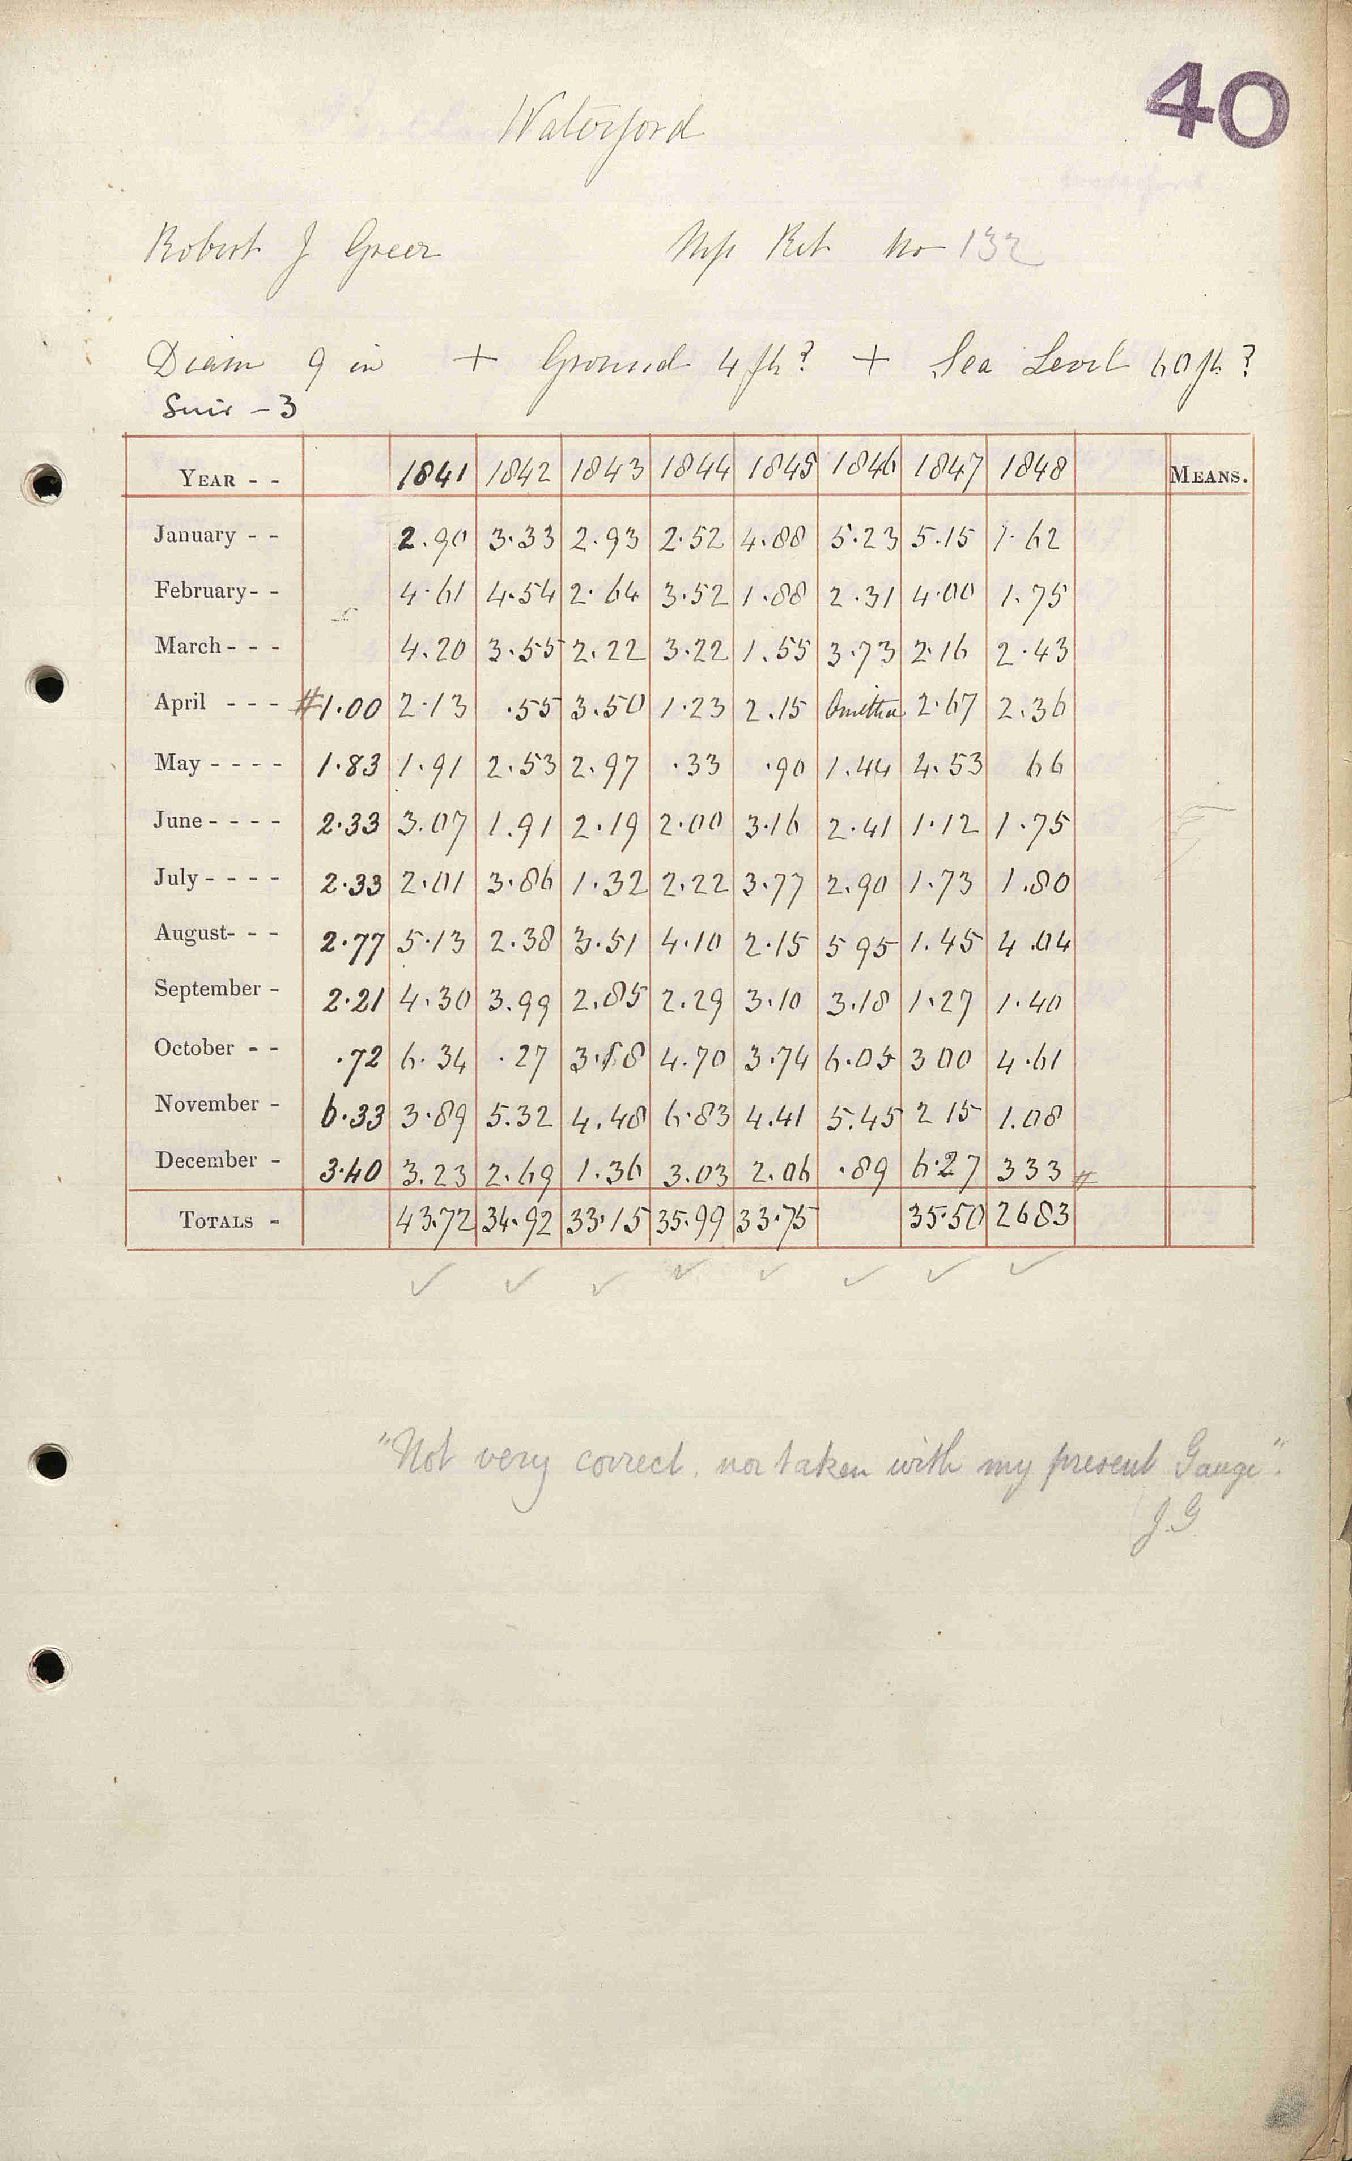 40
Waterford
Robert J Greer Mss Ret No 132
Diam 9 in + Ground 4 ft? + Sea Level 60 ft?
Suir - 3
YEAR - - 1841 1842 1843 1844 1845 1846 1847 1848 MEANS.
January - - 2.90 3.33 2.93 2.52 4.88 5.23 5.15 1.62
February - - 4.61 4.54 2.64 3.52 1.88 2.31 4.00 1.75
March - - - 4.20 3.55 2.22 3.22 1.55 3.73 2.16 2.43
April - - - #1.00 2.13 .55 3.50 1.23 2.15 Omitted 2.67 2.36
May - - - - 1.83 1.91 2.53 2.97 .33 .90 1.44 4.53 66
June - - - - 2.33 3.07 1.91 2.19 2.00 3.16 2.41 1.12 1.75
July - - - - 2.33 2.01 3.86 1.32 2.22 3.77 2.90 1.73 1.80
August - - - 2.77 5.13 2.38 3.51 4.10 2.15 5 95 1.45 4.04
September - 2.21 4.30 3.99 2.85 2.29 3.10 3.18 1.27 1.40
October - - .72 6.34 .27 3.18 4.70 3.74 6.05 3 00 4.61
November - 6.33 3.89 5.32 4.48 6.83 4.41 5.45 2 15 1.08
December - 3.40 3.23 2.69 1.36 3.03 2.06 .89 6.27 3 33 #
TOTALS - 43.72 34.92 33.15 35.99 33.75 35.50 26 83
"Not very correct, nor taken with my present Gauge".
J.G